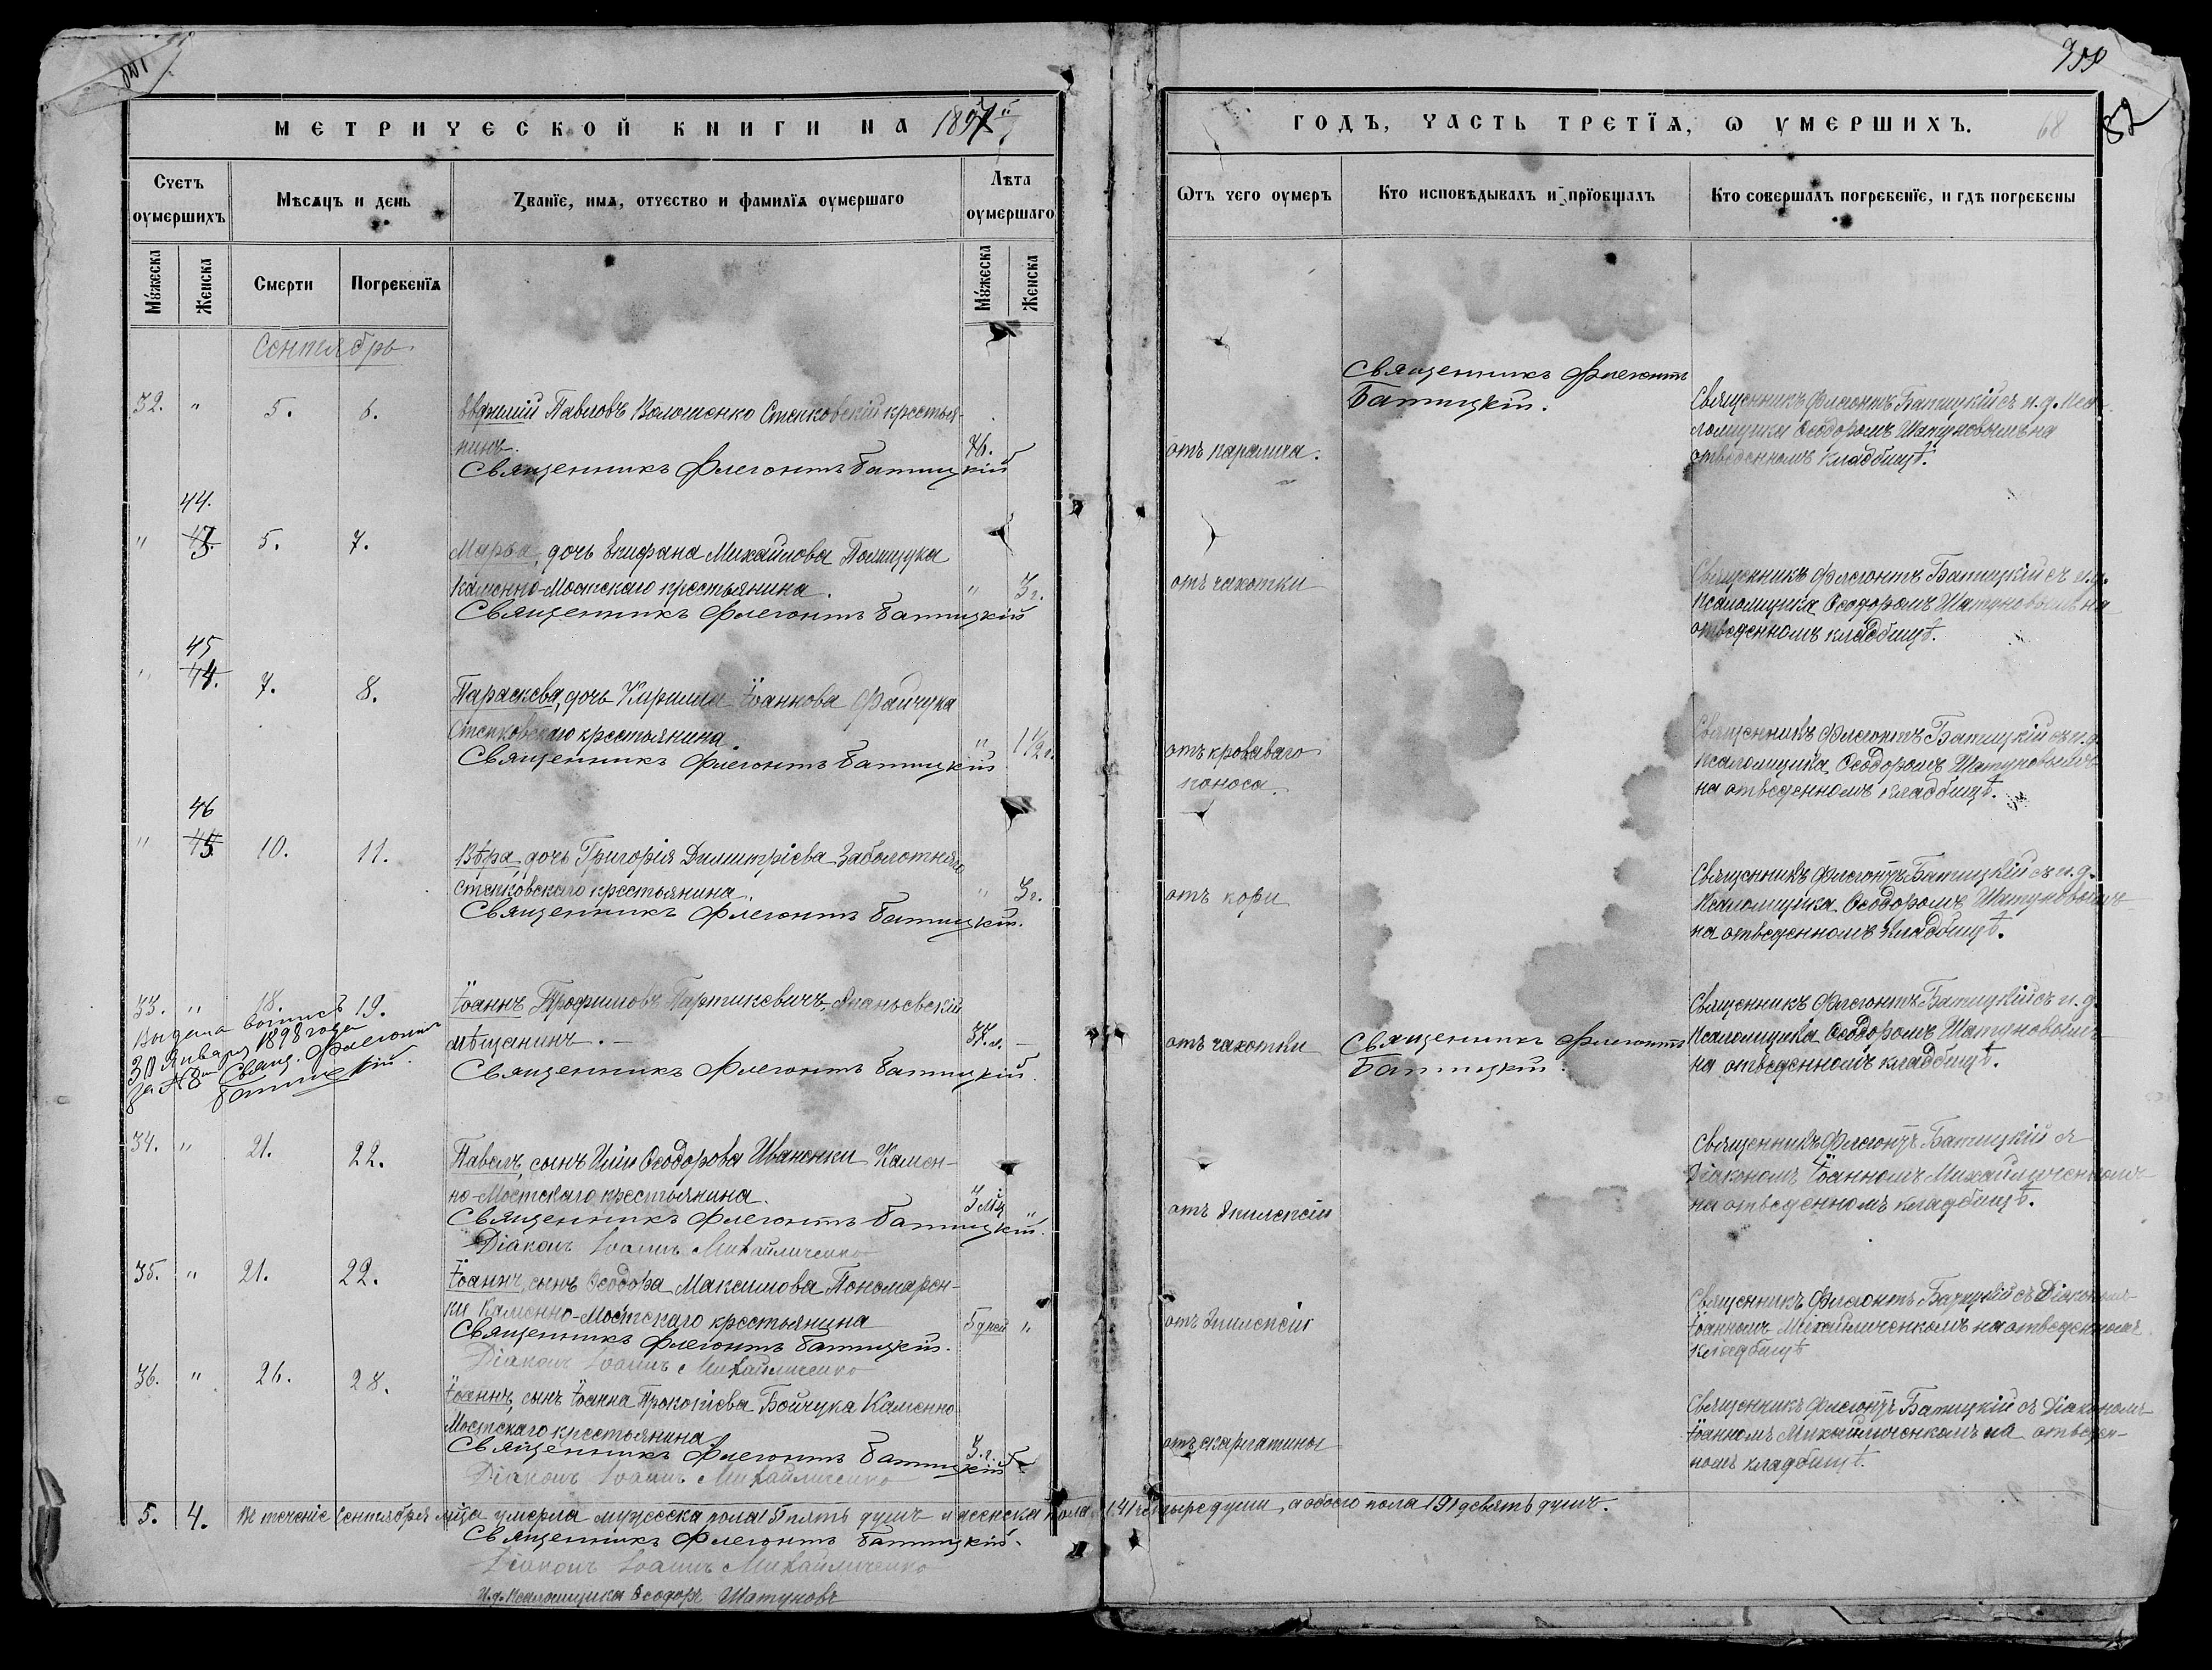 399
82
68
МЕТРИЧЕСКОЙ КНИГИ НА 1897й
ГОДЪ, ЧАСТЬ ТРЕТІѦ, Ѡ УМЕРШИХЪ.
Счетъ оумершихъ
Мѣсѧцъ и день
Званїе, имѧ, отчество и фамилїѧ оумершаго
Лѣта оумершаго
Ѿтъ чего оумеръ
Кто исповѣдывалъ и прїобщалъ
Кто совершалъ погребенїе, и гдѣ погребены
Мꙋжеска
Женска
Смерти
Погребенїѧ
Мꙋжеска
Женска
Сентябрь
32. " 5. 6.
Евфимій Павловъ Волошенко Стенковскій крестья-
нинъ.
76.
Священникъ Флегонтъ Батицкій
отъ паралича.
Священникъ Флегонтъ
Батицкій.
Священникъ Флегонтъ Батицкій съ и. д. Пса-
ломщика Ѳеодоромъ Шатуновымъ на
отведенномъ кладбищѣ.
44.
" 43. 5. 7.
Марѳа, дочь Епифана Михайлова Полищука
Каменно-Мостскаго крестьянина.
" 3 г.
Священникъ Флегонтъ Батицкій
отъ чахотки
Священникъ Флегонтъ Батицкій съ и. д.
Псаломщика Ѳеодоромъ Шатуновымъ на
отведенномъ кладбищѣ.
45
" 44. 7. 8.
Параскева, дочь Кирилла Іоаннова Файчука
Стенковскаго крестьянина.
" 1 1/2 г.
Священникъ Флегонтъ Батицкій
отъ кроваваго
поноса.
Священникъ Флегонтъ Батицкій съ и. д.
Псаломщика Ѳеодоромъ Шатуновымъ
на отведенномъ кладбищѣ.
46
" 45. 10. 11.
Вѣра, дочь Григорія Димитріева Заболотняго
Стенковскаго крестьянина.
" 3 г.
Священникъ Флегонтъ Батицкій.
отъ кори
Священникъ Флегонтъ Батицкій съ и. д.
Псаломщика Ѳеодоромъ Шатуновымъ
на отведенномъ кладбищѣ.
33. " 18. 19.
Выдана выпись
30 Января 1898 года
за № 8м Свящ. Флегонтъ
Батицкій.
Іоаннъ Трофимовъ Партикевичъ, Ананьевскій
мѣщанинъ. –
37 л. –
Священникъ Флегонтъ Батицкій.
отъ чахотки
Священникъ Флегонтъ
Батицкій.
Священникъ Флегонтъ Батицкій съ и. д.
Псаломщика Ѳеодоромъ Шатуновымъ
на отведенномъ кладбищѣ.
34. " 21. 22.
Павелъ, сынъ Иліи Ѳеодорова Иваненки Камен-
но-Мостскаго крестьянина.
3 мѣц "
Священникъ Флегонтъ Батицкій.
Діаконъ Іоаннъ Михайличенко
отъ Эпилепсіи
Священникъ Флегонтъ Батицкій съ
Діакономъ Іоанномъ Михайличенкомъ
на отведенномъ кладбищѣ.
35. " 21. 22.
Іоаннъ, сынъ Ѳеодора Максимова Пономарен-
ки Каменно-Мостскаго крестьянина
5 дней "
Священникъ Флегонтъ Батицкій.
Діаконъ Іоаннъ Михайличенко
отъ Эпилепсіи
Священникъ Флегонтъ Батицкій съ Діакономъ
Іоанномъ Михайличенкомъ на отведенномъ
кладбищѣ
36. " 26. 28.
Іоаннъ, сынъ Іоанна Прокопіева Бойчука Каменно
Мостскаго крестьянина.
3 г.
Священникъ Флегонтъ Батицкій
Діаконъ Іоаннъ Михайличенко
отъ скарлатины
Священникъ Флегонтъ Батицкій съ Діакономъ
Іоанномъ Михайличенкомъ на отведен-
номъ кладбищѣ.
5. 4. Въ теченіе Сентября мѣца умерло мужеска пола (5) пять душъ и женска пола (4) четыре души, а обоего пола (9) девять душъ.
Священникъ Флегонтъ Батицкій.
Діаконъ Іоаннъ Михайличенко
И. д. Псаломщика Ѳеодоръ Шатуновъ